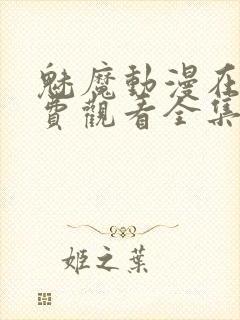 魅魔動漫在
費觀看全集
姬之葉